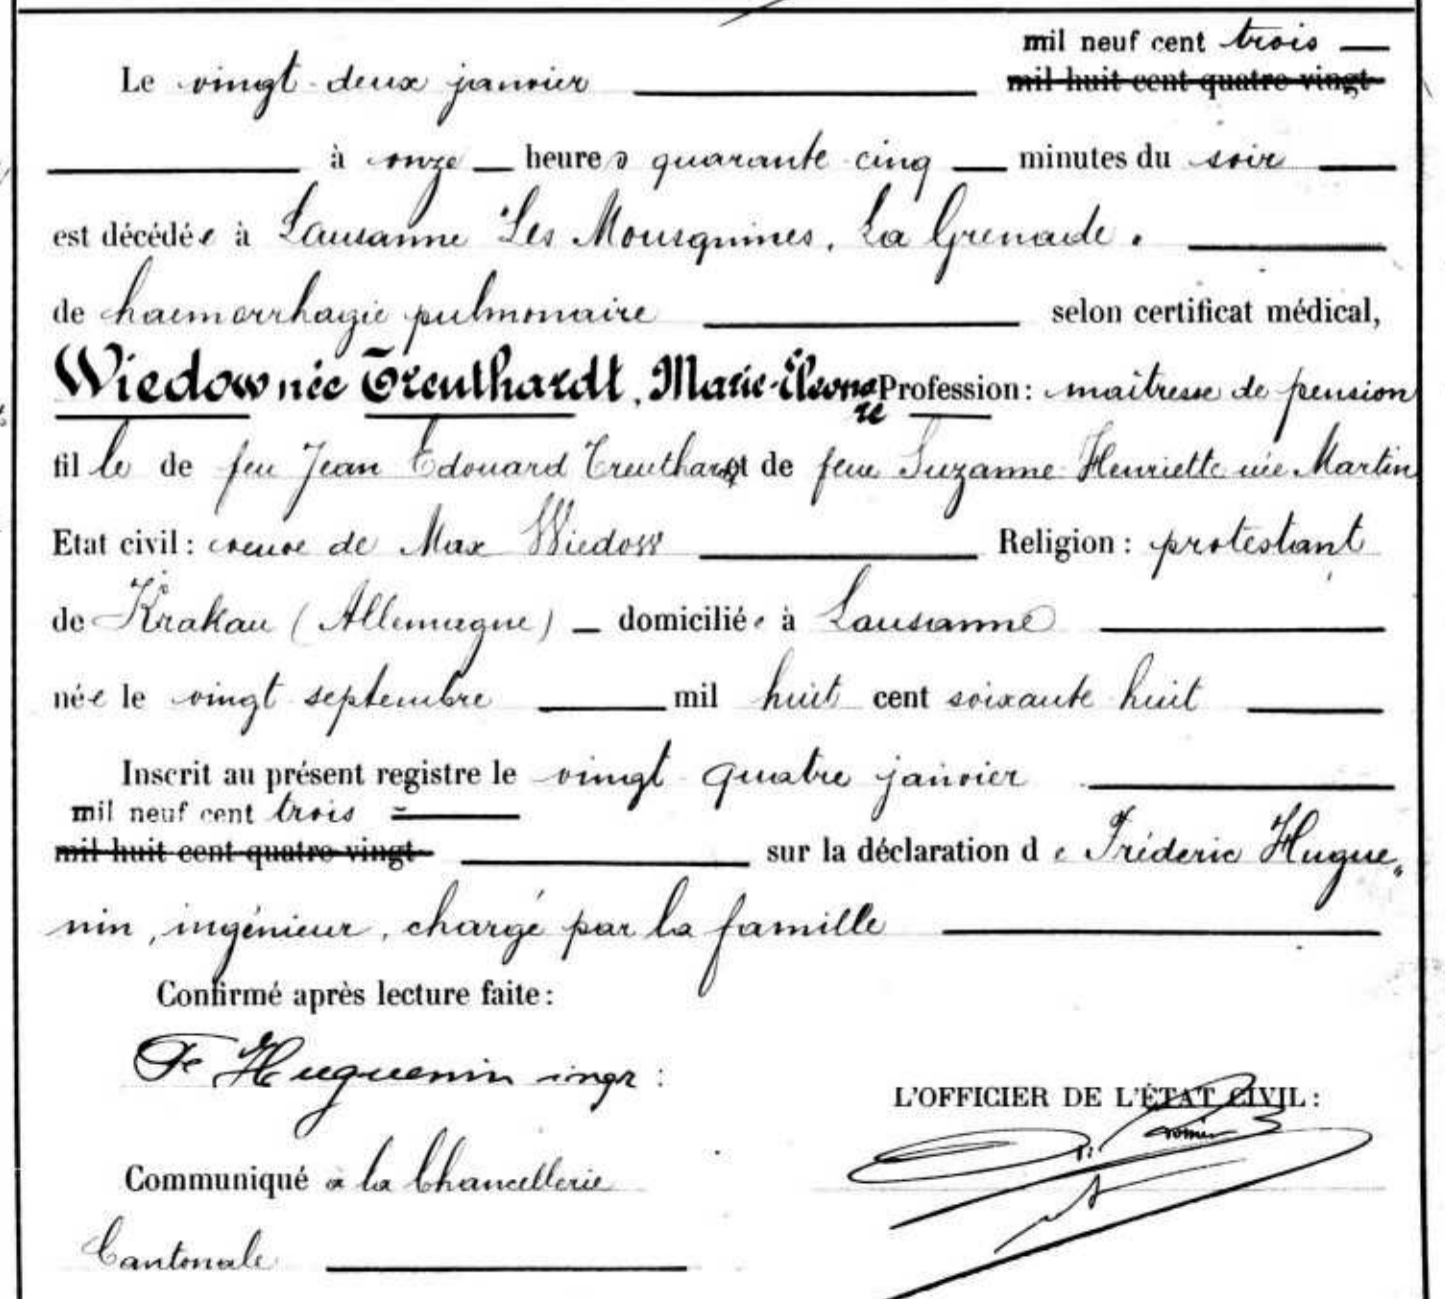 mil neuf cent trois
Le vingt-deux janvier mil huit cent quatre-vingt
à onze heures quarante cinq minutes du soir
est décédée à Lausanne Les Mousquines, La Grenade.
de haemorrhagie pulmonaire selon certificat médical,
Wiedow née Treuthardt, Marie-Éléonore Profession: maîtresse de pension
fille de feu Jean Edouard Treuthardt et de feue Suzanne-Henriette née Martin
Etat civil: veuve de Max Wiedow Religion: protestant
de Krakau (Allemagne) domiciliée à Lausanne
née le vingt septembre mil huit cent soixante huit
Inscrit au présent registre le vingt-quatre janvier
mil neuf cent trois
mil huit cent quatre-vingt sur la déclaration de Fréderic Hugue„
nin, ingénieur, chargé par la famille
Confirmé après lecture faite:
Fc Huguenin ingr:
L'OFFICIER DE L'ÉTAT CIVIL:
Communiqué à la Chancellerie
Cantonale